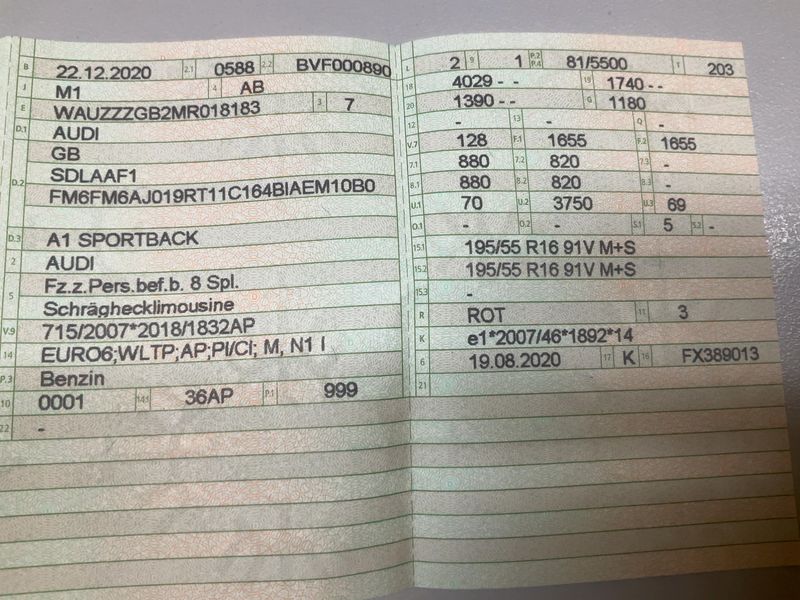 B 22.12.2020 2.1 0588 2.2 BVF000890
J M1 4 AB
E WAUZZZGB2MR018183 3 7
D.1 AUDI
GB
D.2 SDLAAF1
FM6FM6AJ019RT11C164BIAEM10B0
D.3 A1 SPORTBACK
2 AUDI
5 Fz.z.Pers.bef.b. 8 Spl.
Schräghecklimousine
V.9 715/2007*2018/1832AP
14 EURO6;WLTP;AP;PI/CI; M, N1 I
P.3 Benzin
10 0001 14.1 36AP P.1 999
22 -
L 2 9 1 P.2 P.4 81/5500 T 203
18 4029 - - 19 1740 - -
20 1390 - - G 1180
12 - 13 - Q -
V.7 128 F.1 1655 F.2 1655
7.1 880 7.2 820 7.3 -
8.1 880 8.2 820 8.3 -
U.1 70 U.2 3750 U.3 69
O.1 - O.2 - S.1 5 S.2 -
15.1 195/55 R16 91V M+S
15.2 195/55 R16 91V M+S
15.3 -
R ROT 11 3
K e1*2007/46*1892*14
6 19.08.2020 17 K 16 FX389013
21